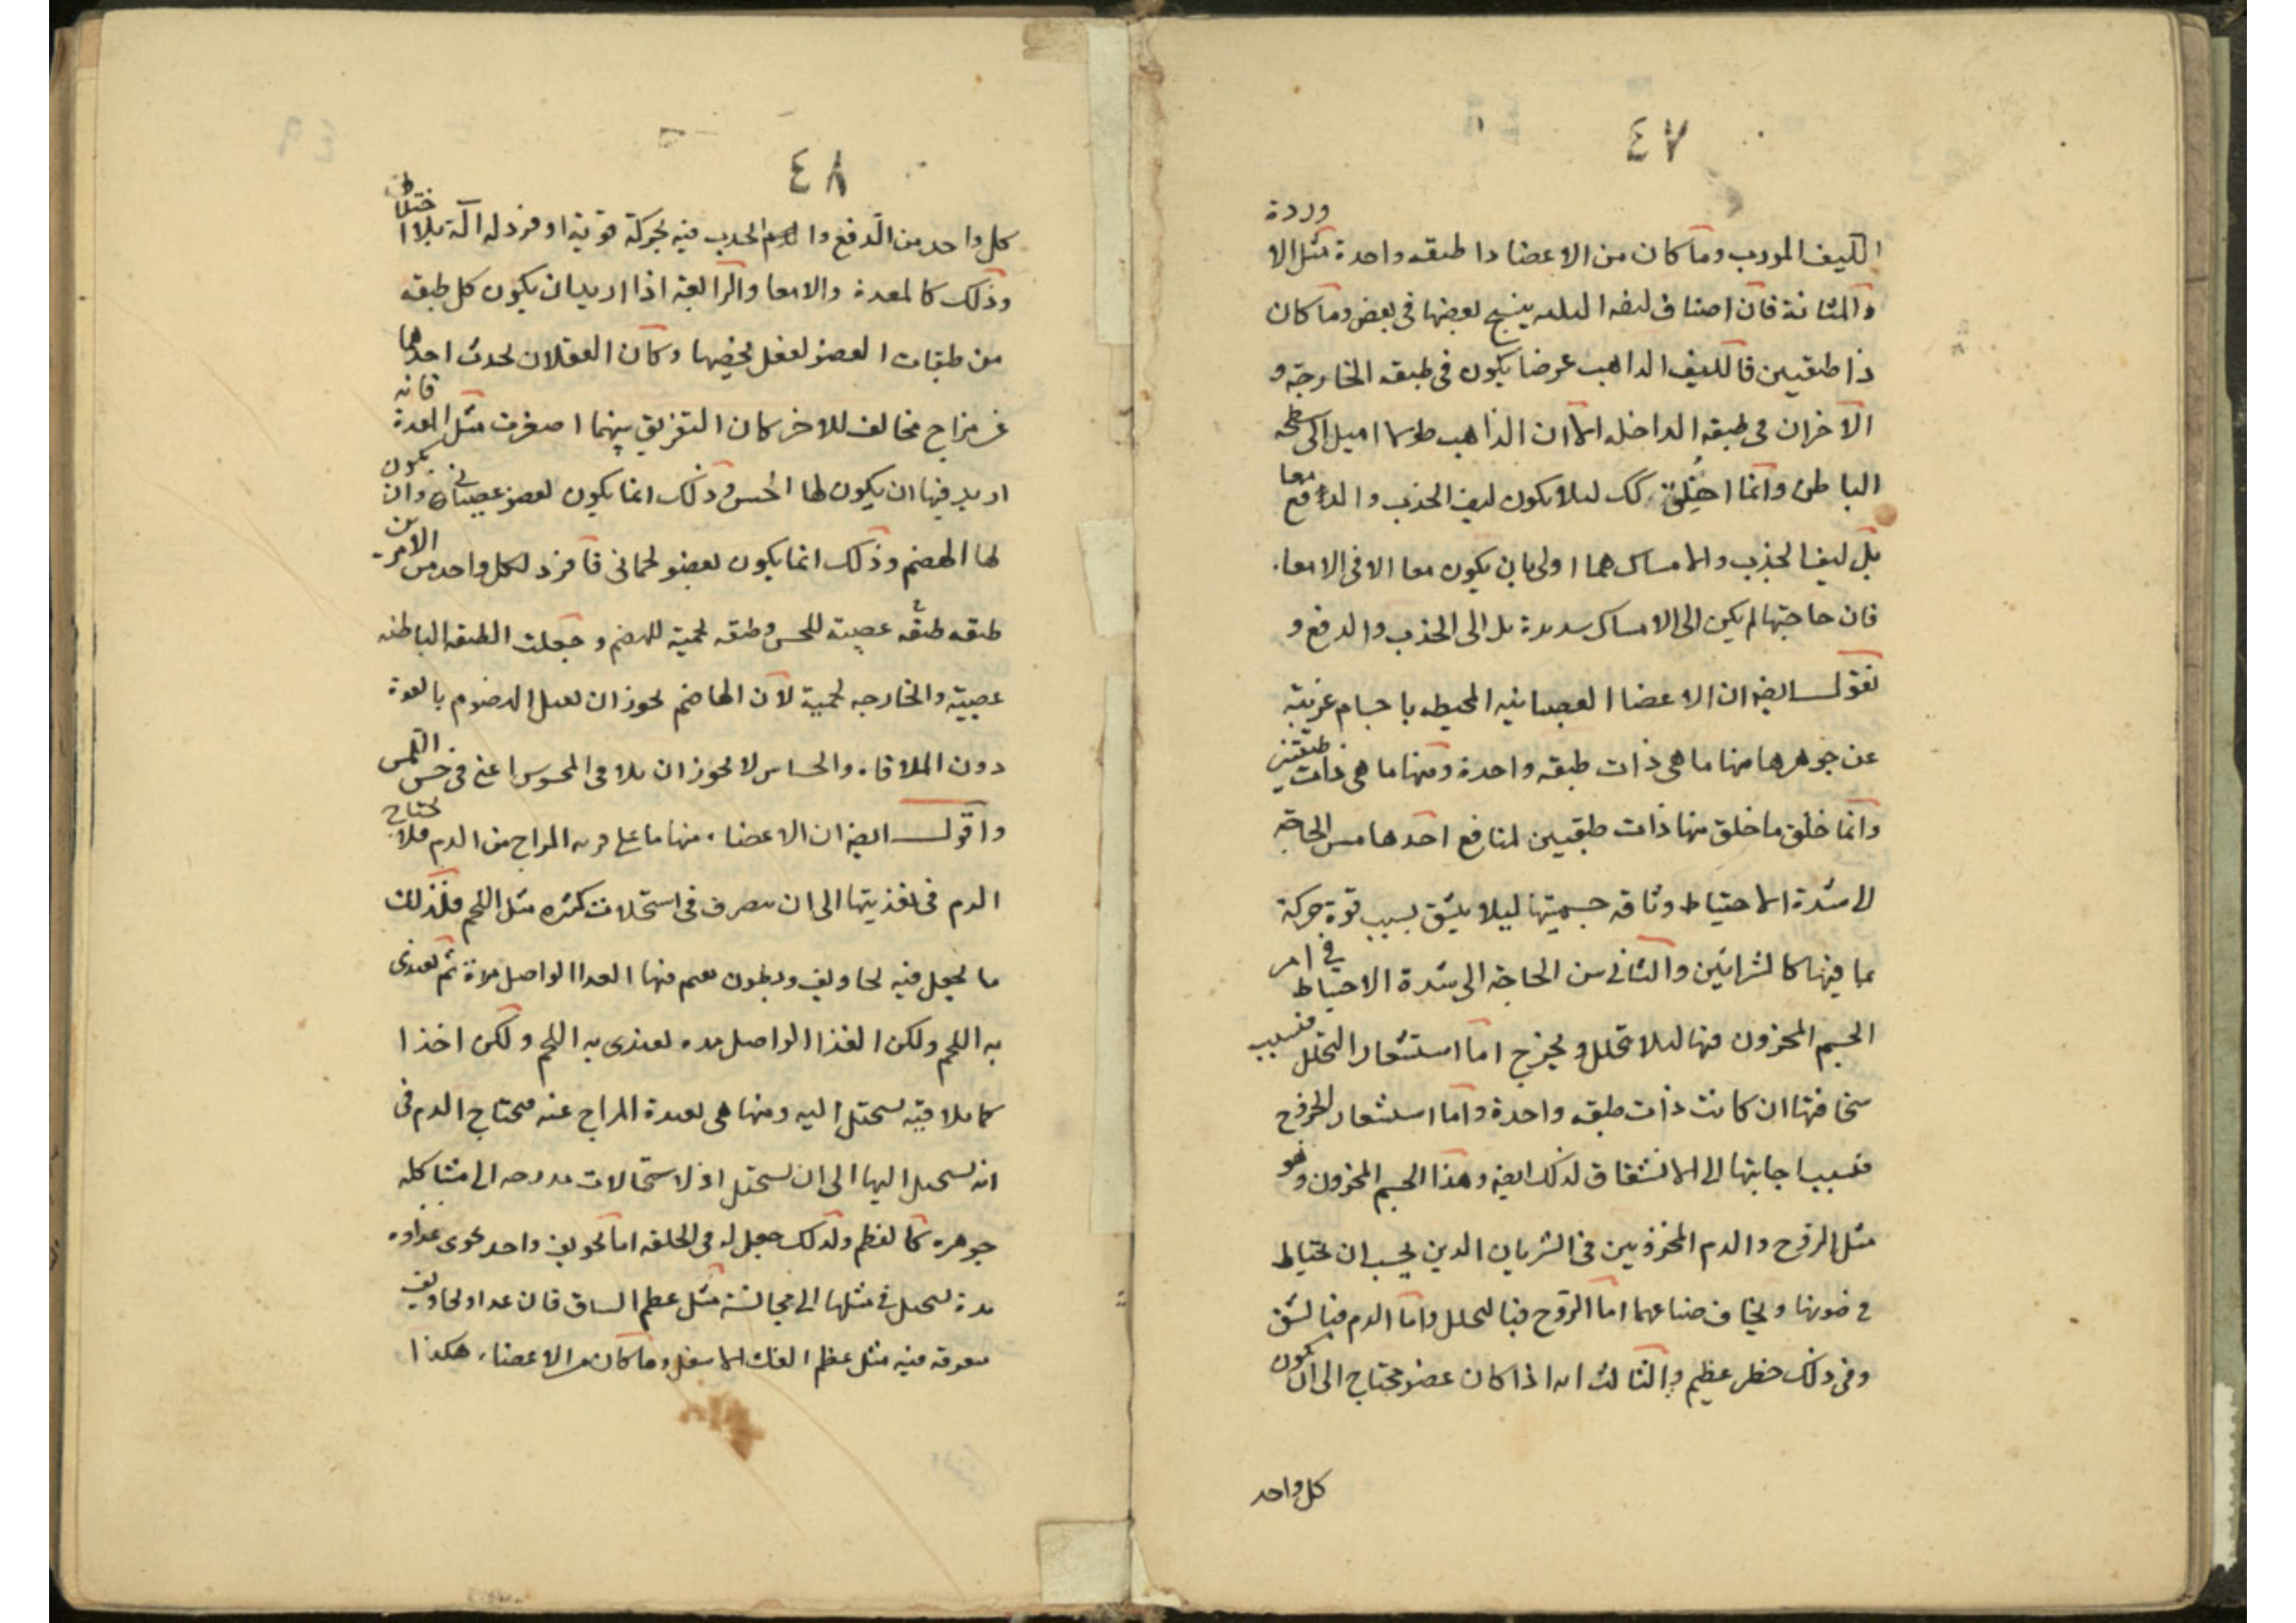 ٤٧
الليف المورب وما كان من الاعضا ذا طبقه واحدة مثل الاوردة
والمثانة فان اصناف ليفه الثلثه ينسج بعضها فى بعض وما كان
ذا طبقتين فالليف الذاهب عرضا يكون فى طبقه الخارجة و
الآخران فى طبقه الداخله الا ان الذاهب طولا اميل الى سطحه
الباطن وانما خلق كك ليلا يكون ليف الجذب والدفع معا
بل ليف الجذب والامساك هما اولى بان يكون معا الا فى الامعاء
فان حاجتها لم يكن الى الامساك شديدة بل الى الجذب والدفع و
نقول ايضا ان الاعضا العصبانيه المحيطه باجسام غريبة
عن جوهرها منها ما هى ذات طبقه واحدة ومنها ما هى ذات طبقتين
وانما خلق ما خلق منها ذات طبقتين لمنافع احدها مس الحاجة
الى شدة الاحتياط وثاقه جسميتها ليلا ينشق بسبب قوة حركة
بما فيها كالشرائين والثانى من الحاجة الى شدة الاحتياط فى امر
الجسم المخزون فيها ليلا يتحلل ويخرج اما استشعار التحلل فبسبب
سخافتها ان كانت ذات طبقه واحدة واما استشعار الخروج
فبسبب اجابتها الى الانشقاق لذلك ايضا وهذا الجسم المخزون وهو
مثل الروح والدم المخزونين فى الشريان الذين يجب ان يحتاط
فى صونها ويخاف ضياعهما اما الروح فبالتحلل واما الدم فبالشق
وفى ذلك خطر عظيم والثالث انه اذا كان عضو محتاج الى ان يكون
كل واحد
٤٨
كل واحد من الدفع والجذب فيه بحركة قوية افرد له آلة بلا اختلاط
وذلك كالمعدة والامعا والرابعة اذا اريد ان يكون كل طبقه
من طبقات العضو لفعل يخصها وكان الفعلان يحدث احدهما
عن مزاج مخالف للاخر كان التفريق بينهما اصوب مثل المعدة فانه
اريد فيها ان يكون لها الحس وذلك انما يكون لعضو عصبانى وان يكون
لها الهضم وذلك انما يكون بعضو لحمانى فافرد لكل واحد من الامرين
طبقه طبقه عصبية للحس وطبقه لحمية للهضم وجعلت الطبقه الباطنه
عصبية والخارجه لحمية لان الهاضم يجوز ان يصل المهضوم بالقوة
دون الملاقاه والحاس لا يجوز ان يلاقى المحسوس اعنى فى حس اللمس
واقول ايضا ان الاعضاء منها ما هى قريبه المزاج من الدم فلا يحتاج
الدم فى تغذيتها الى ان يتصرف فى استحالات كثيره مثل اللحم فلذلك
ما يجعل فيه تجاويف وبطون يقيم فيها الغذا الواصل مدة ثم يغتذى
به اللحم ولكن الغذا الواصل مده يغتذى به اللحم ولكن اخذا
كما يلاقيه يستحيل اليه ومنها هى بعيدة المزاج عنه فيحتاج الدم فى
انه يستحيل اليها الى ان يستحيل اولا استحالات مدرجه الى مشاكله
جوهره كالعظم ولذلك جعل له فى الخلقه اما تجويف واحد يحوى غذاوه
مدة يستحيل فى مثلها الى مجانسة مثل عظم الساق فان عدا وتجاويف
متفرقه فيه مثل عظم الفك الاسفل وما كان من الاعضاء هكذا